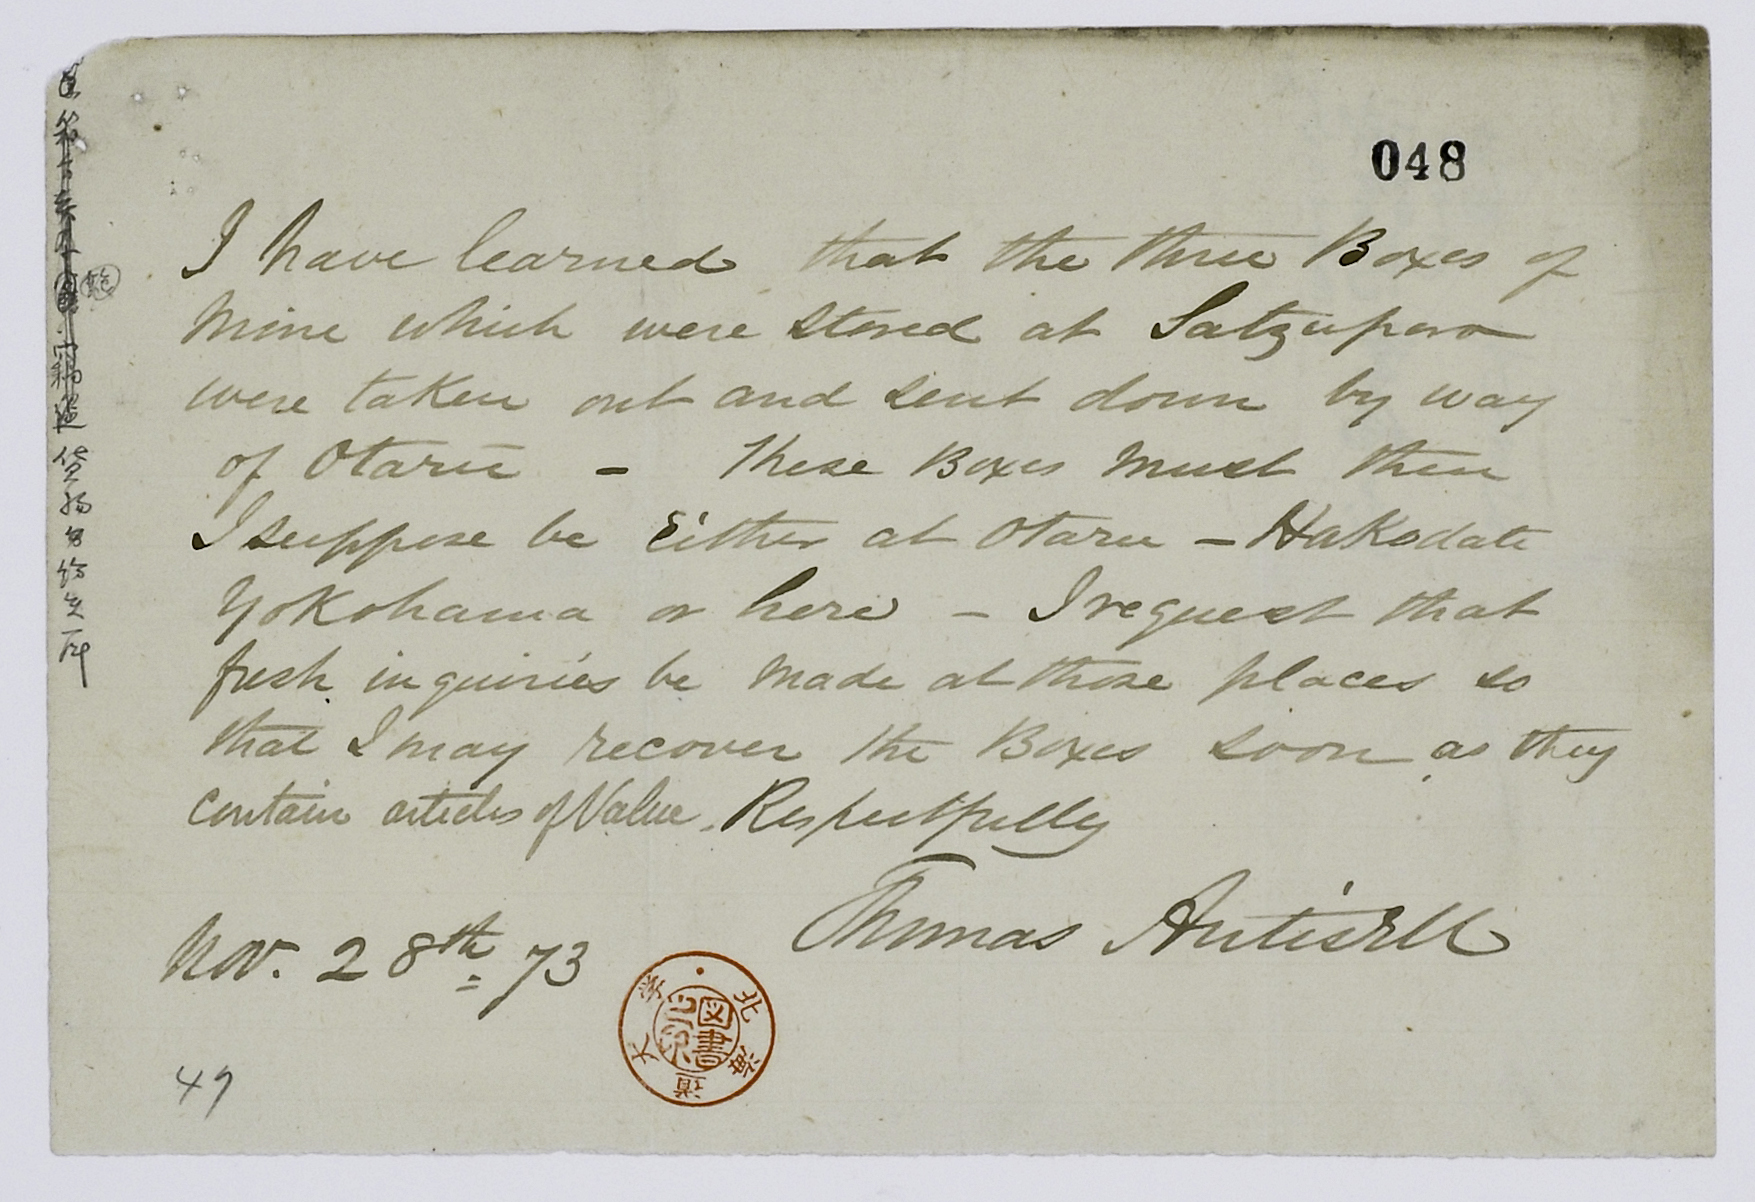 048
I have learned that the three Boxes of
mine which were stored at Satzuporo
were taken out and sent down by way
of Otaru - These Boxes must then
I suppose be Either at Otaru - Hakodate
Yokohama or here - I request that
fresh inquiries be made at those places so
that I may recover the Boxes soon as they
contain articles of Value. Respectfully
Thomas Antisell
Nov. 28th 73
北海道大学
図書
49